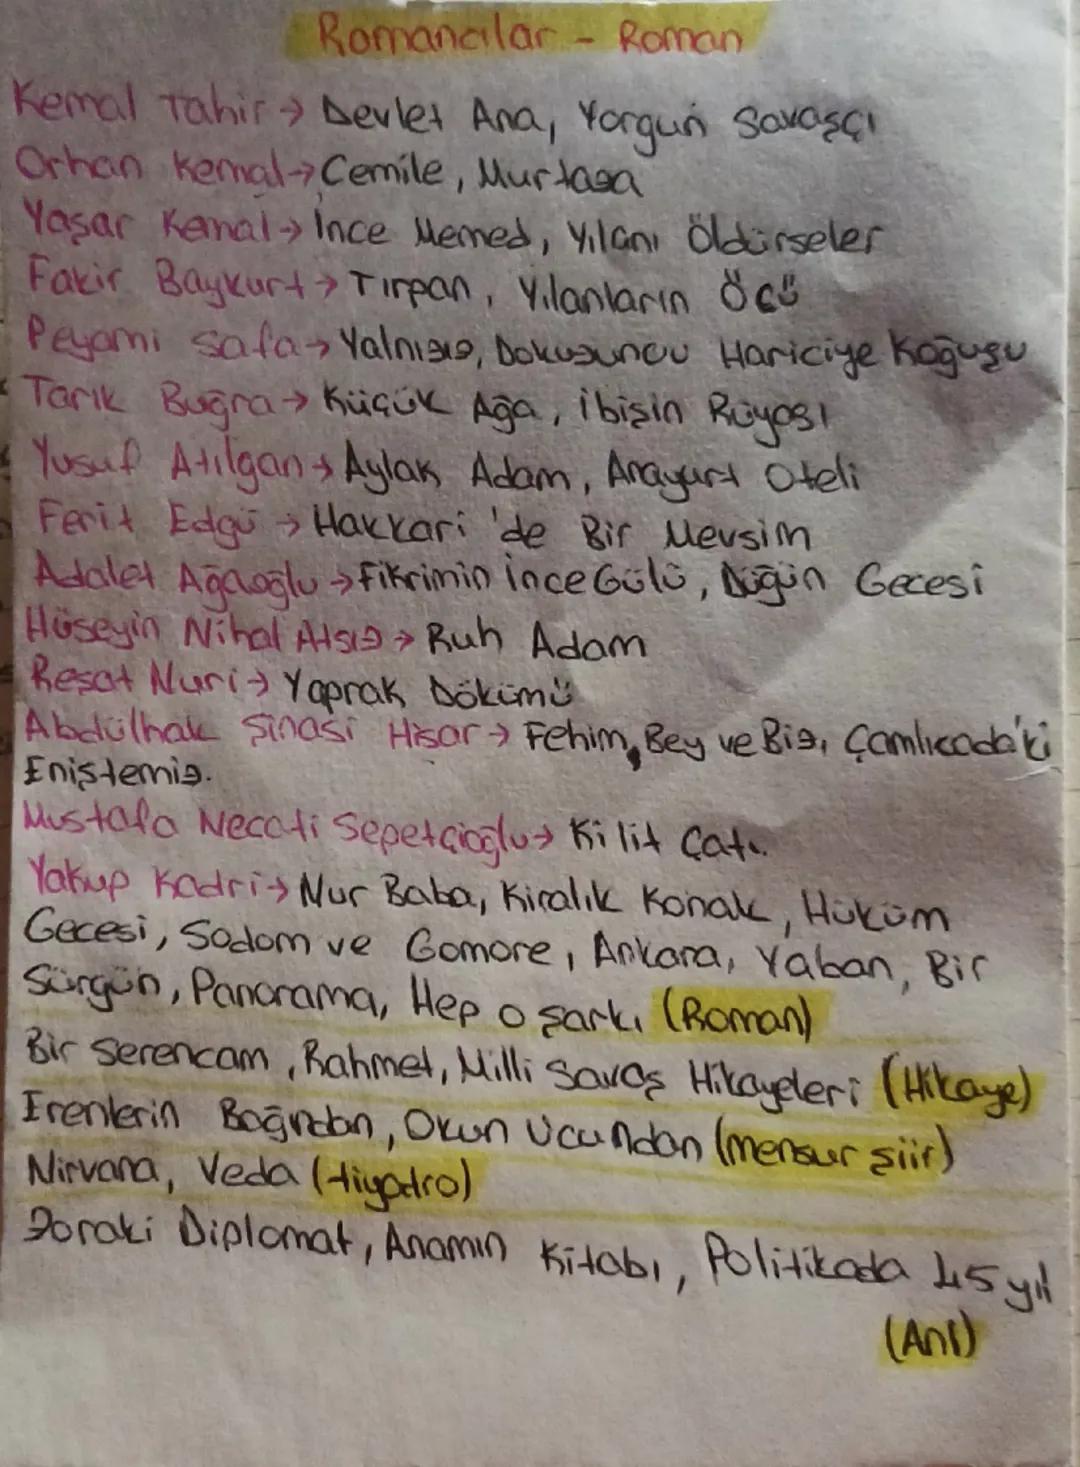 Romancılar - Roman
Kemal Tahir → Devlet Ana, Yorgun Savaşçı
Orhan Kemal → Cemile, Murtaza
Yaşar Kemal → İnce Memed, Yılanı Öldürseler
Fakir Baykurt → Tırpan, Yılanların Öcü
Peyami Safa → Yalnızız, Dokuzuncu Hariciye Koğuşu
Tarık Buğra → Küçük Ağa, İbişin Rüyası
Yusuf Atılgan → Aylak Adam, Anayurt Oteli
Ferit Edgü → Hakkari'de Bir Mevsim
Adalet Ağaoğlu → Fikrimin İnce Gülü, Düğün Gecesi
Hüseyin Nihal Atsız → Ruh Adam
Reşat Nuri → Yaprak Dökümü
Abdülhak Şinasi Hisar → Fehim Bey ve Biz, Çamlıcada'ki
Eniştemiz.
Mustafa Necati Sepetçioğlu → Kilit Çatı.
Yakup Kadri → Nur Baba, Kiralık Konak, Hüküm
Gecesi, Sodom ve Gomore, Ankara, Yaban, Bir
Sürgün, Panorama, Hep o şarkı (Roman)
Bir Serencam, Rahmet, Milli Savaş Hikayeleri (Hikaye)
Erenlerin Bağından, Okun Ucundan (mensur şiir)
Nirvana, Veda (tiyatro)
Zoraki Diplomat, Anamın Kitabı, Politikada 45 yıl
(Anı)